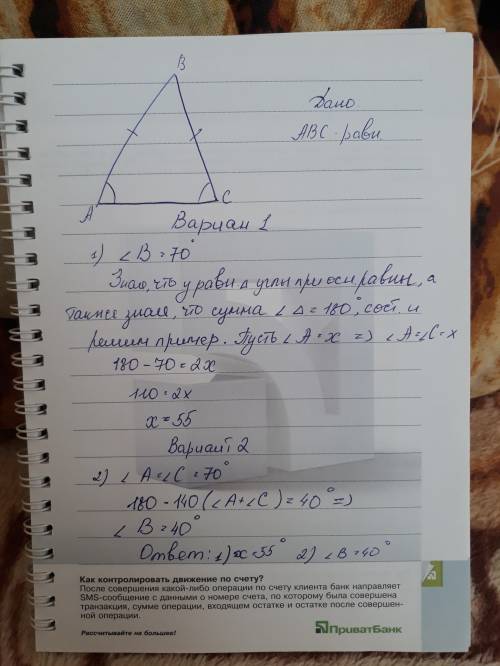 B
Дано
ABC - равн.
A
C
Вариан 1
1) ∠B = 70°
Знаю, что у равн △ углы при осн равны, а
также знаем, что сумма ∠ △ = 180°, сост. и
решим пример. Пусть ∠A = x => ∠A = ∠C = x
180 - 70 = 2x
110 = 2x
x = 55
Вариант 2
2) ∠A = ∠C = 70°
180 - 140 (∠A + ∠C) = 40° =>
∠B = 40°
Ответ: 1) x = 55° 2) ∠B = 40°
Как контролировать движение по счету?
После совершения какой-либо операции по счету клиента банк направляет
SMS-сообщение с данными о номере счета, по которому была совершена
транзакция, сумме операции, входящем остатке и остатке после совершен-
ной операции.
Рассчитывайте на большее!
ПриватБанк